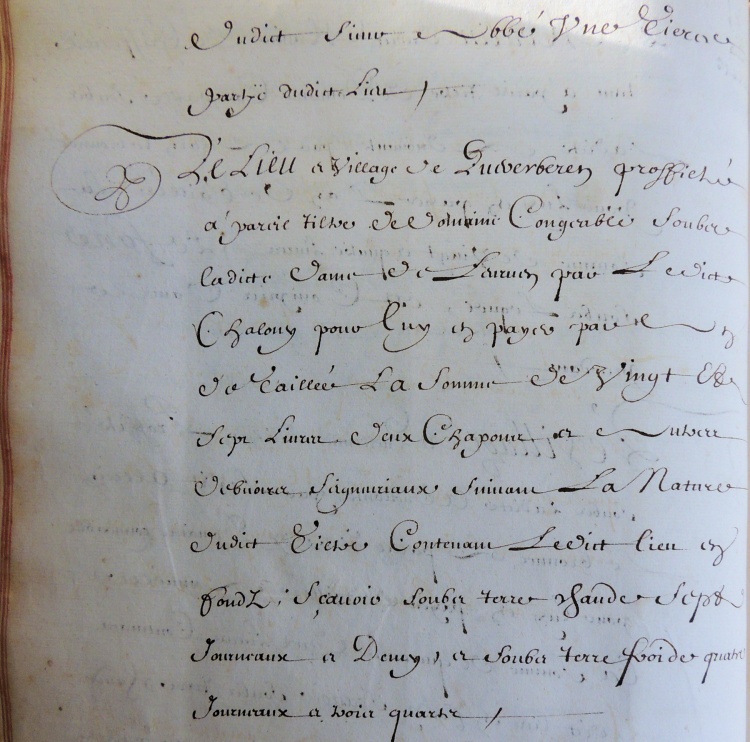 dudict sieur Abbé Une Tierce
partye dudict Lieu /
Le Lieu et Village de proffitté
a pareil tiltre de domaine Congeable soubz
ladicte Dame de par Ledict
Chalony pour luy en payer par
de Taillée La somme de Vingt et
sept Livres deux Chapons et Autres
debvoirs seigneuriaux suivant La Nature
dudict Tiltre Contenant Ledict lieu en
fondz, sçavoir soubz terre chaude sept
Journeaux et Demy, et soubz terre froide quatre
Journeaux et trois quartz /